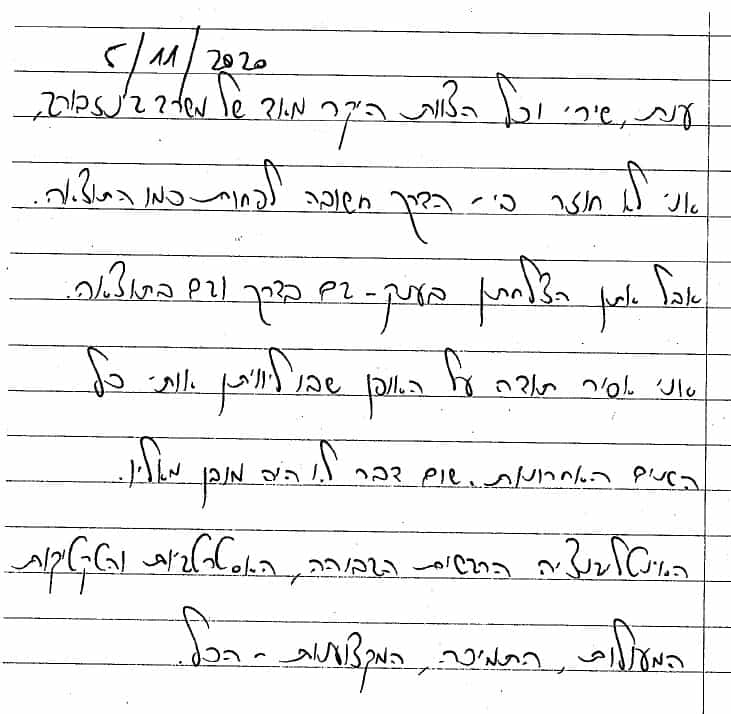 5/11/2020
ענת, שירי וכל הצוות היקר מאוד של משרד גינזבורג,
אני לא חוזר בי - הדרך חשובה לפחות כמו התוצאה.
אבל אתן הצלחתן בענק - גם בדרך וגם בתוצאה.
אני אסיר תודה על האופן שבו ליוויתן אותי כל
השנים האחרונות. שום דבר לא היה מובן מאליו.
האינטליגנציה הרגשית הגבוהה, האסטרטגיות והטקטיקות
המעולות, התמיכה, המקצועיות - הכל.